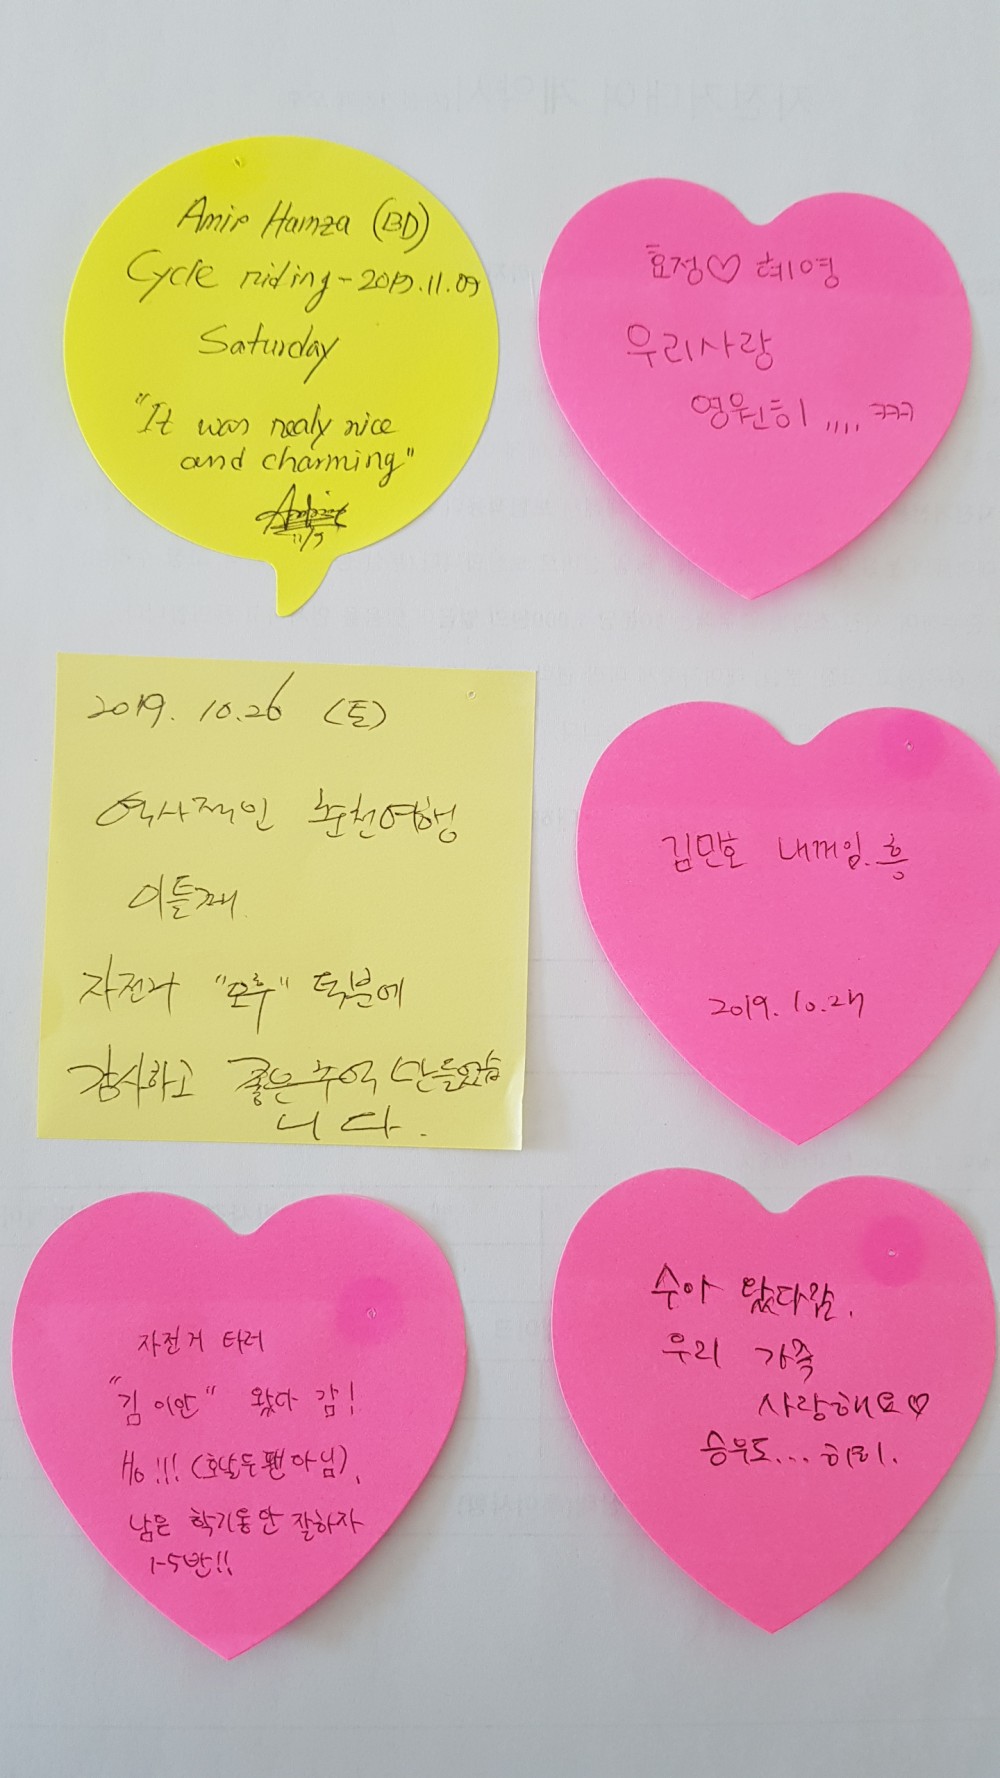 Amir Hamza (BD)
Cycle riding - 2019.11.09
Saturday
"It was nealy nice
and charming"
11/9
효정♡혜영
우리사랑
영원히 ,,,, ㅋㅋㅋ
2019. 10.26 (토)
역사적인 춘천여행
이틀째.
자전거 "모루" 덕분에
감사하고 좋은추억 만들었습
니다.
김민호 내꺼임.흥
2019. 10.27
자전거 타러
"김이안" 왔다 감!
Ho !!! (호날두 팬 아님).
남은 학기동안 잘하자
1-5반!!
수아 왔다감.
우리 가족
사랑해요♡
승우도... 히히.